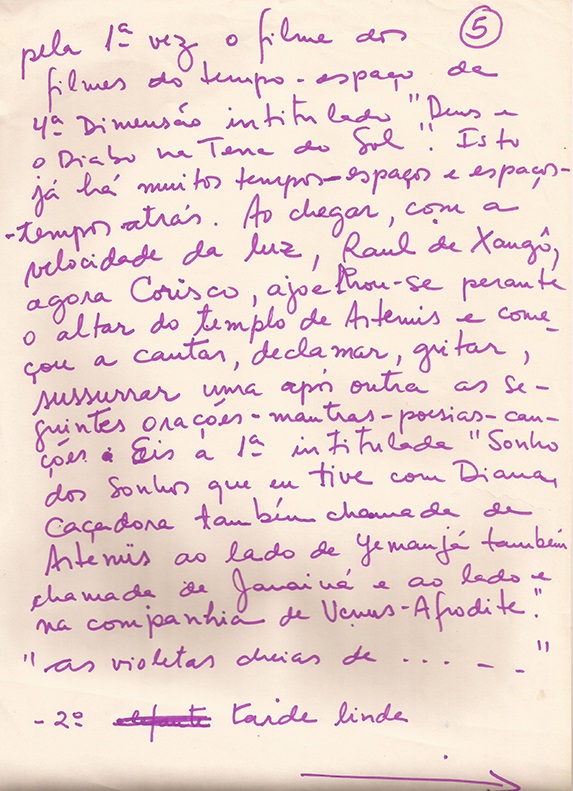 5
pela 1ª vez o filme dos
filmes do tempo-espaço da
4ª Dimensão intitulado "Deus e
o Diabo na Terra do Sol". Isto
já há muitos tempos-espaços e espaços-
-tempos atrás. Ao chegar, com a
velocidade da luz, Raul de Xangô,
agora Corisco, ajoelhou-se perante
o altar do templo de Artemis e come-
çou a cantar, declamar, gritar,
sussurrar uma após outra as se-
guintes orações-mantras-poesias-can-
ções. Eis a 1ª intitulada "Sonho
dos Sonhos que eu tive com Diana,
Caçadora também chamada de
Artemis ao lado de Yemanjá também
chamada de Janaína e ao lado e
na companhia de Venus-Afrodite".
"as violetas cheias de ... . - - "
-2º tarde linda